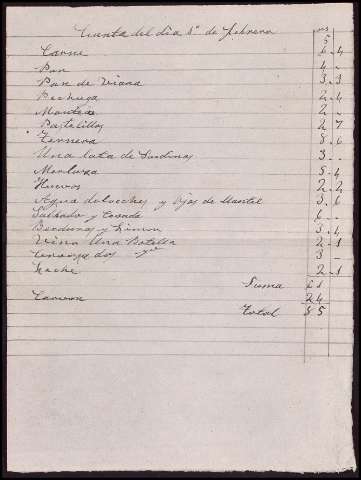 Cuenta del dia 1º de febrero
Carne 6 . 4
Pan 4 -
Pan de Viana 3 . 3
Pechuga 2 . 4
Manteca 2 -
Pastelillos 2 7
Ternera 8 . 6
Una lata de Sardinas 3 -
Merluza 5 . 4
Huevos 2 . 2
Agua de leches y Ojos de Mantel 3 . 6
Salvado y Cebada 6 -
y Limon 3 . 4
Vino Una Botella 2 . 1
dos 3 -
Leche 2 . 1
Suma 61
Carbon 24
Total 85